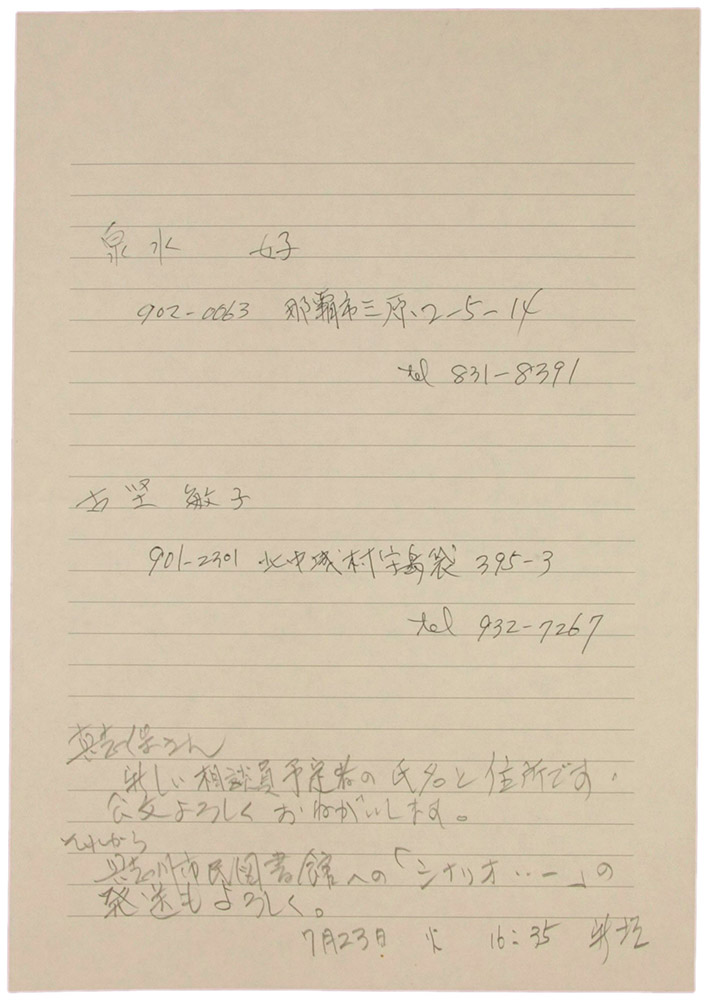 泉水 好子
902-0063 那覇市三原、2-5-14
tel 831-8391
古堅 敏子
901-2301 北中城村字島袋 395-3
tel 932-7267
真喜保さん
新しい相談員予定者の氏名と住所です.
公文よろしくおねがいします。
それから
具志川市民図書館への「シナリオ‥ー」の
発送もよろしく。
7月23日 火 16:35 新垣